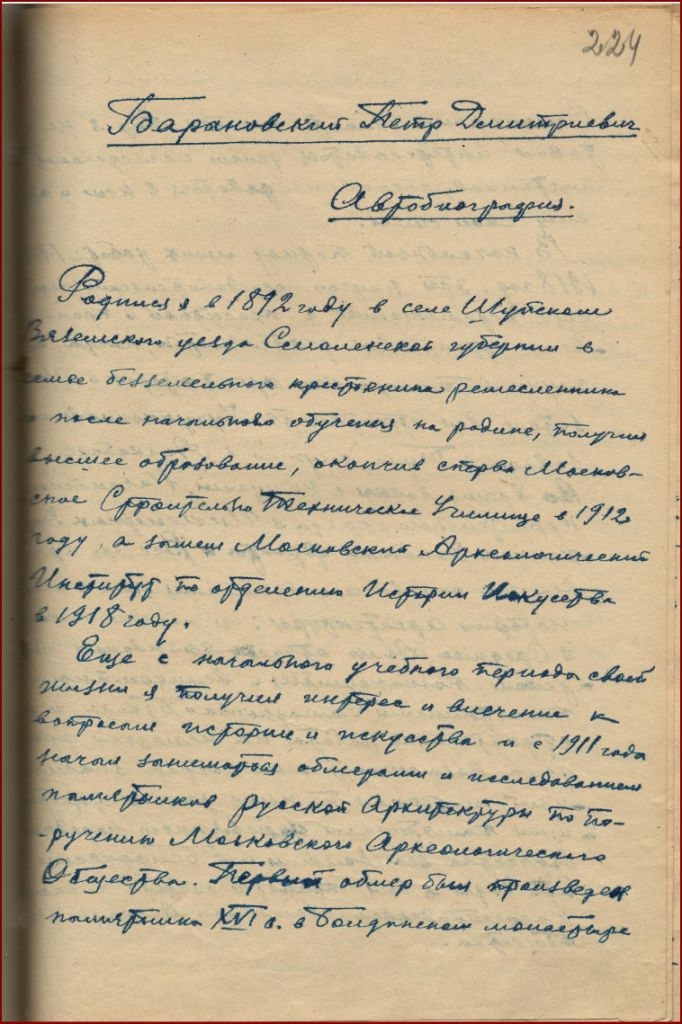 224
Барановский Петр Дмитриевич
Автобиография.
Родился в 1892 году в селе Шуйском
Вяземского уезда Смоленской губернии в
семье безземельного крестьянина ремесленника
и после начального обучения на родине, получил
высшее образование, окончив сперва Москов-
ское Строительно Техническое Училище в 1912
году, а затем Московский Археологический
Институт по отделению Истории Искусства
в 1918 году.
Еще с начального учебного периода своей
жизни я получил интерес и влечение к
вопросам истории и искусства и с 1911 года
начал заниматься обмерами и исследованием
памятников русской архитектуры по по-
-ручению Московского Археологического
Общества. Первый обмер был произведен
памятника XVI в. в Болдинском монастыре